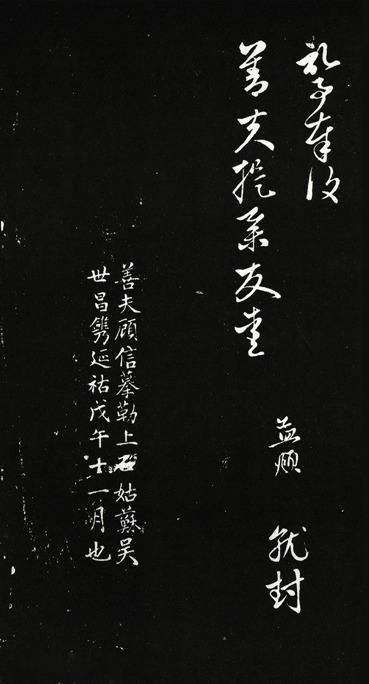 記事奉復
善夫提舉友
孟頫 就封
善夫顧信摹勒上石姑蘇吳
世昌鐫延祐戊午十一月也